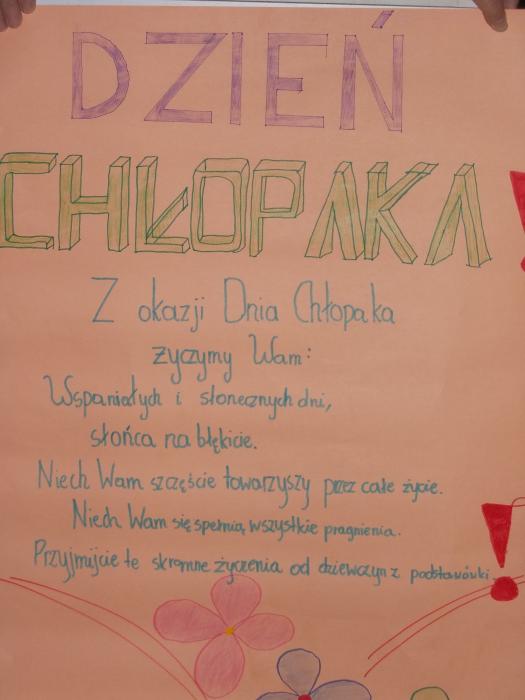 DZIEŃ
CHŁOPAKA
Z okazji Dnia Chłopaka
życzymy Wam:
Wspaniałych i słonecznych dni,
słońca na błękicie.
Niech Wam szczęście towarzyszy przez całe życie.
Niech Wam się spełnią wszystkie pragnienia.
Przyjmijcie te skromne życzenia od dziewczyn z podstawówki.